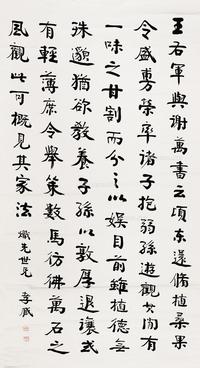 王右軍與謝萬書云頃東還脩植桑果
今盛敷榮率諸子抱弱孫遊觀其間有
一味之甘割而分之以娛目前雖植德無
殊邈猶欲教養子孫以敦厚退讓或
有輕薄庶令舉策數馬彷彿萬石之
風觀此可概見其家法 先世兄 李